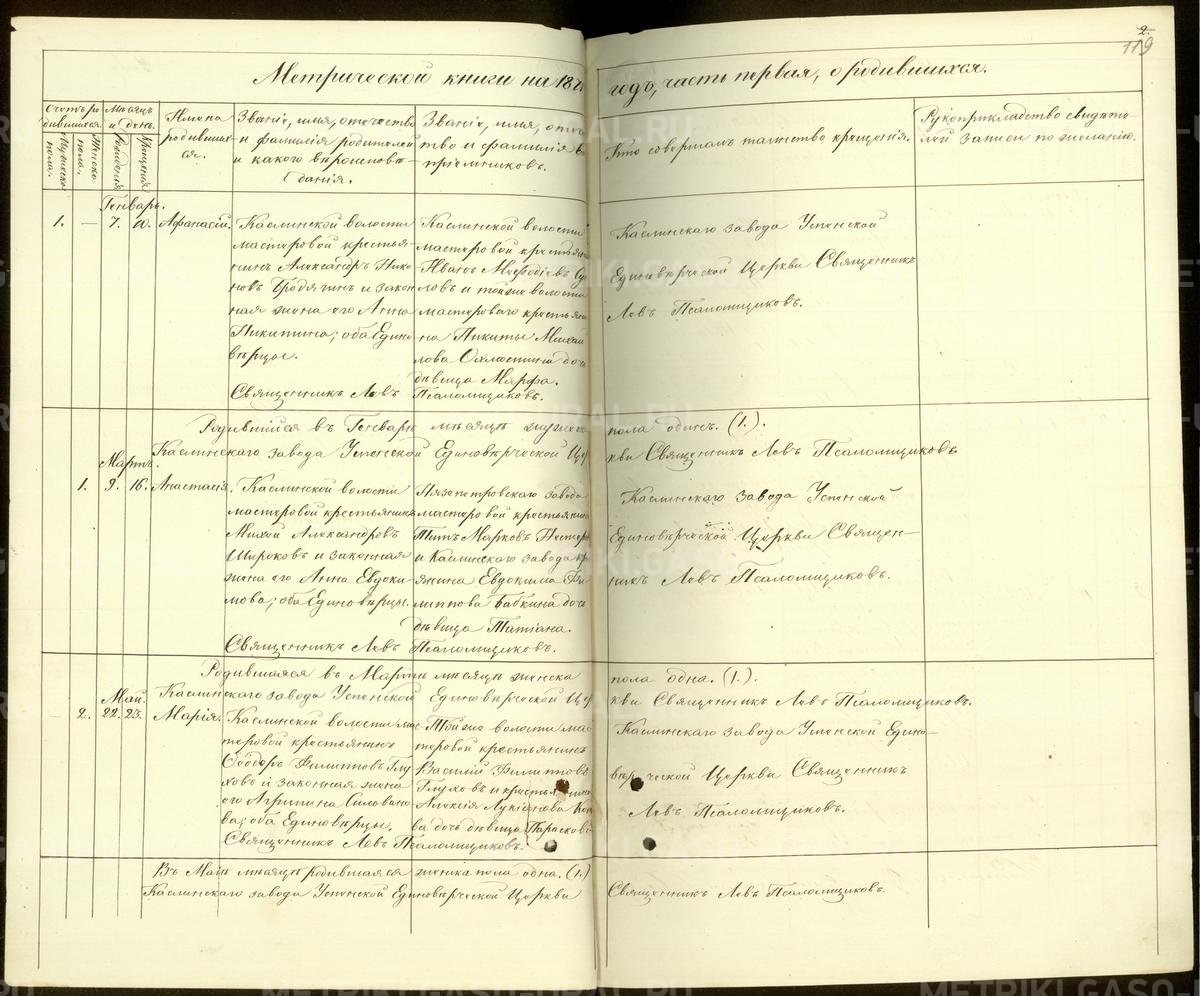 2.
119
Метрической книги на 187 годъ, часть первая, о родившихся.
Счетъ родившихся.
Мужеска пола.
Женска пола.
Мѣсяцъ и день.
Рожденія
Крещенія
Имена родившихся.
Званіе, имя, отчество
и фамилія родителей
и какого вѣроисповѣ-
данія.
Званіе, имя, отче-
тво и фамилія
пріемниковъ.
Кто совершалъ таинство крещенія.
Рукоприкладство свидѣте-
лей записи по желанію.
Генварь.
1. — 7. 10. Афанасій.
Каслинской волости
мастеровой крестья-
нинъ Александръ Нико-
новъ Бродягинъ и закон
ная жена его Анна
Никитина; оба Едино-
вѣрцы.
Каслинской волости
мастеровой крестьяни
Иванъ Меѳодіевъ
ловъ и тойже волости
мастероваго крестьяни
на Никиты Михай
лова доч
дѣвица Марѳа.
Священникъ Левъ Псаломщиковъ.
Каслинскаго завода Успенской
Единовѣрческой Церкви Священникъ
Левъ Псаломщиковъ.
Родившійся въ Генварѣ мѣсяцѣ мужеска пола одинъ. (1.).
Каслинскаго завода Успенской Единовѣрческой Церкви Священникъ Левъ Псаломщиковъ
Мартъ.
1. 9. 16. Анастасія.
Каслинской волости
мастеровой крестьянинъ
Михей Александровъ
Широковъ и законная
жена его Анна Евдоки-
мова; оба Единовѣрцы.
Нязепетровскаго завода
мастеровой крестьянинъ
Титъ Марковъ Нестер
и Каслинскаго завода кр
янина Евдокима Фи
липпова Бабкина доч
дѣвица Татіана.
Священникъ Левъ Псаломщиковъ.
Каслинскаго завода Успенской
Единовѣрческой Церкви Священ-
никъ Левъ Псаломщиковъ.
Родившаяся въ Мартѣ мѣсяцѣ женска пола одна. (1.).
Каслинскаго завода Успенской Единовѣрческой Церкви Священникъ Левъ Псаломщиковъ.
Май.
— 2. 22. 23. Марія.
Каслинской волости ма
теровой крестьянинъ
Ѳеодоръ Филипповъ Глу
ховъ и законная жена
его Агрипина Силовано
ва; оба Единовѣрцы.
Тойже волости мас
теровой крестьянинъ
Василій Филипповъ
Глуховъ и крестьянина
Алексія Лукіанова
ва дочь дѣвица Параскові
Священникъ Левъ Псаломщиковъ.
Каслинскаго завода Успенской Едино-
вѣрческой Церкви Священникъ
Левъ Псаломщиковъ.
Въ Маѣ мѣсяцѣ родившаяся женска пола одна. (1.)
Каслинскаго завода Успенской Единовѣрческой Церкви Священникъ Левъ Псаломщиковъ.
METRIKI.GASO-URAL.RU